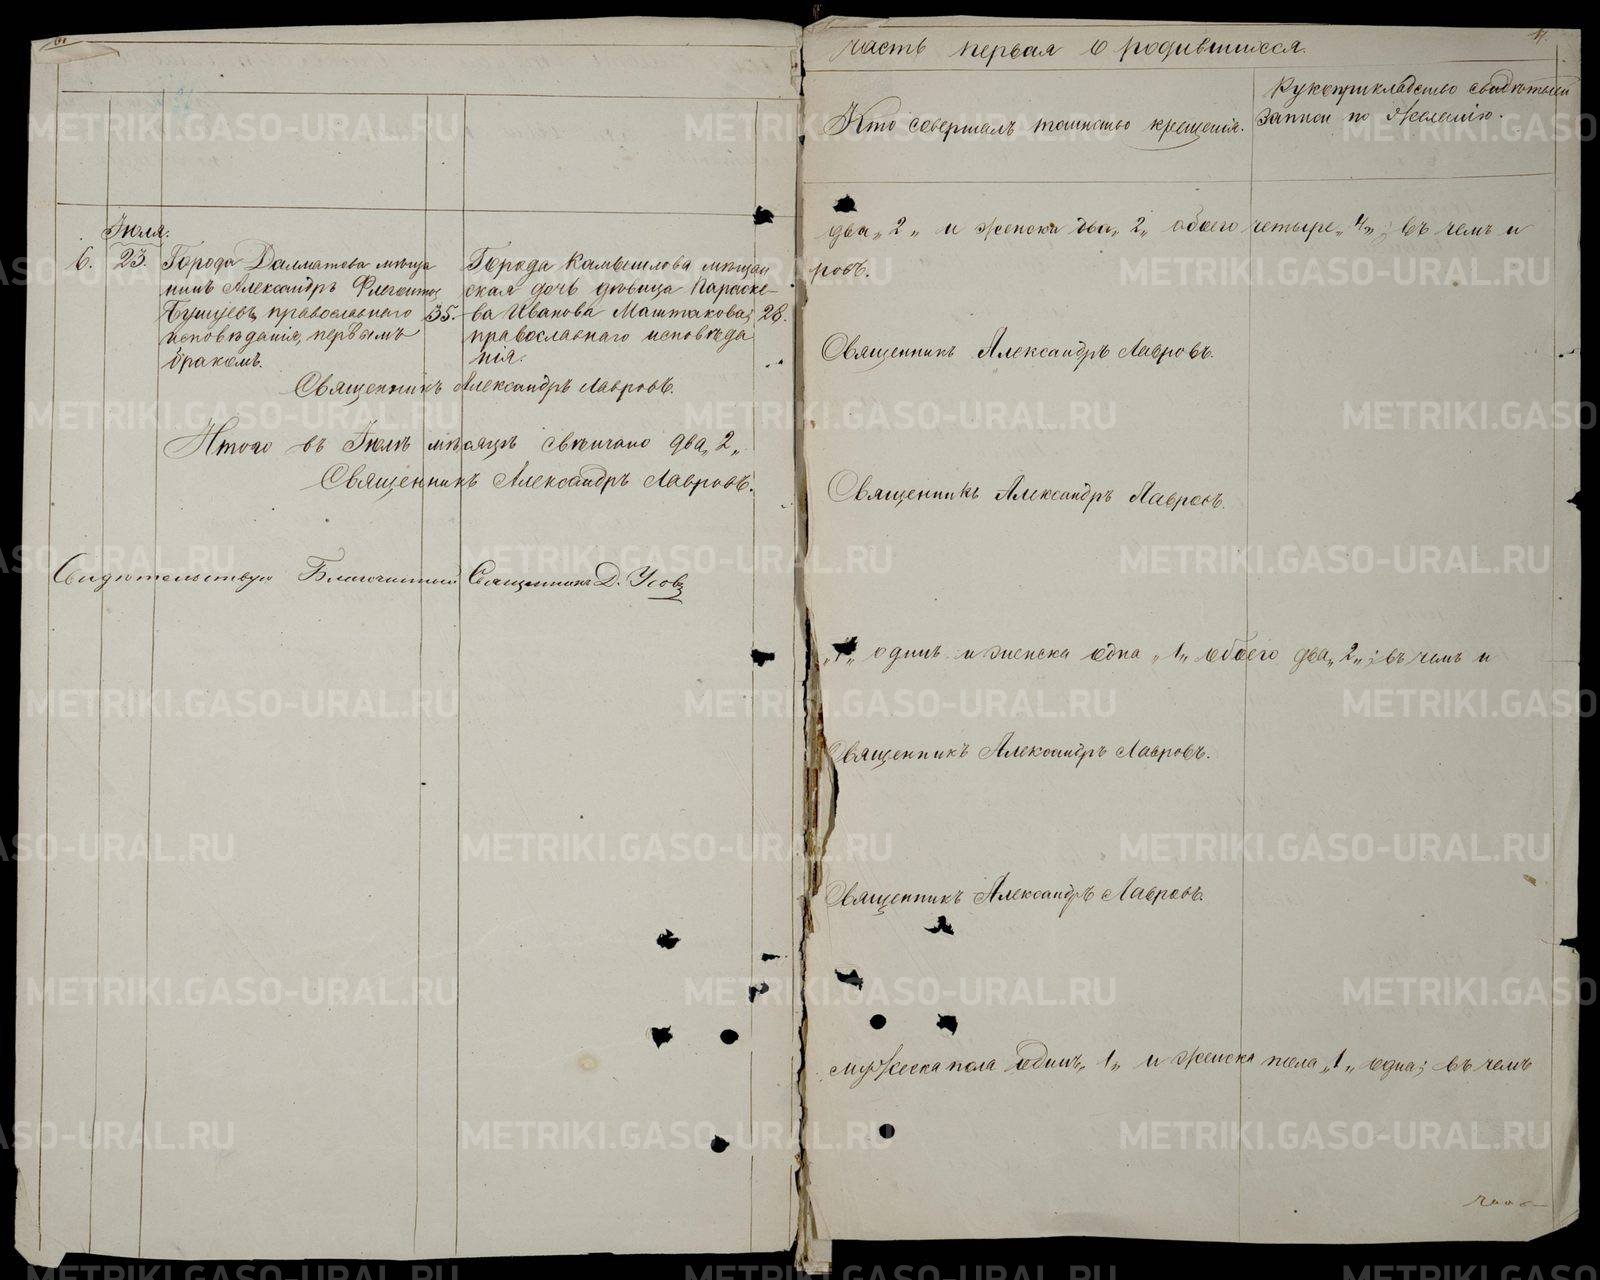 Іюля.
6. 23. Города Далматова мѣща
нинъ Александръ
православнаго 35.
исповѣданія, первымъ
бракомъ.
Города Камышлова мѣщан
ская дочь дѣвица Параске-
ва Иванова Маштакова; 28.
православнаго исповѣда
нія.
Священникъ Александръ Лавровъ.
Итого въ Іюлѣ мѣсяцѣ свѣнчано два „2„
Священникъ Александръ Лавровъ.
Свидѣтельствую Благочинный Священникъ Д. Усовъ
часть первая о родившихся.
Кто совершалъ таинство крещенія.
Рукоприкладство свидѣтелей
записи по желанію.
два „2„ и женска два „2„ обоего четыре „4„; въ чемъ и
ровъ.
Священникъ Александръ Лавровъ.
Священникъ Александръ Лавровъ.
„1„ одинъ и женска одна „1„ обоего два „2„; въ чемъ и
Священникъ Александръ Лавровъ.
Священникъ Александръ Лавровъ.
мужеска пола одинъ „1„ и женска пола „1„ одна; въ чемъ
METRIKI.GASO-URAL.RU